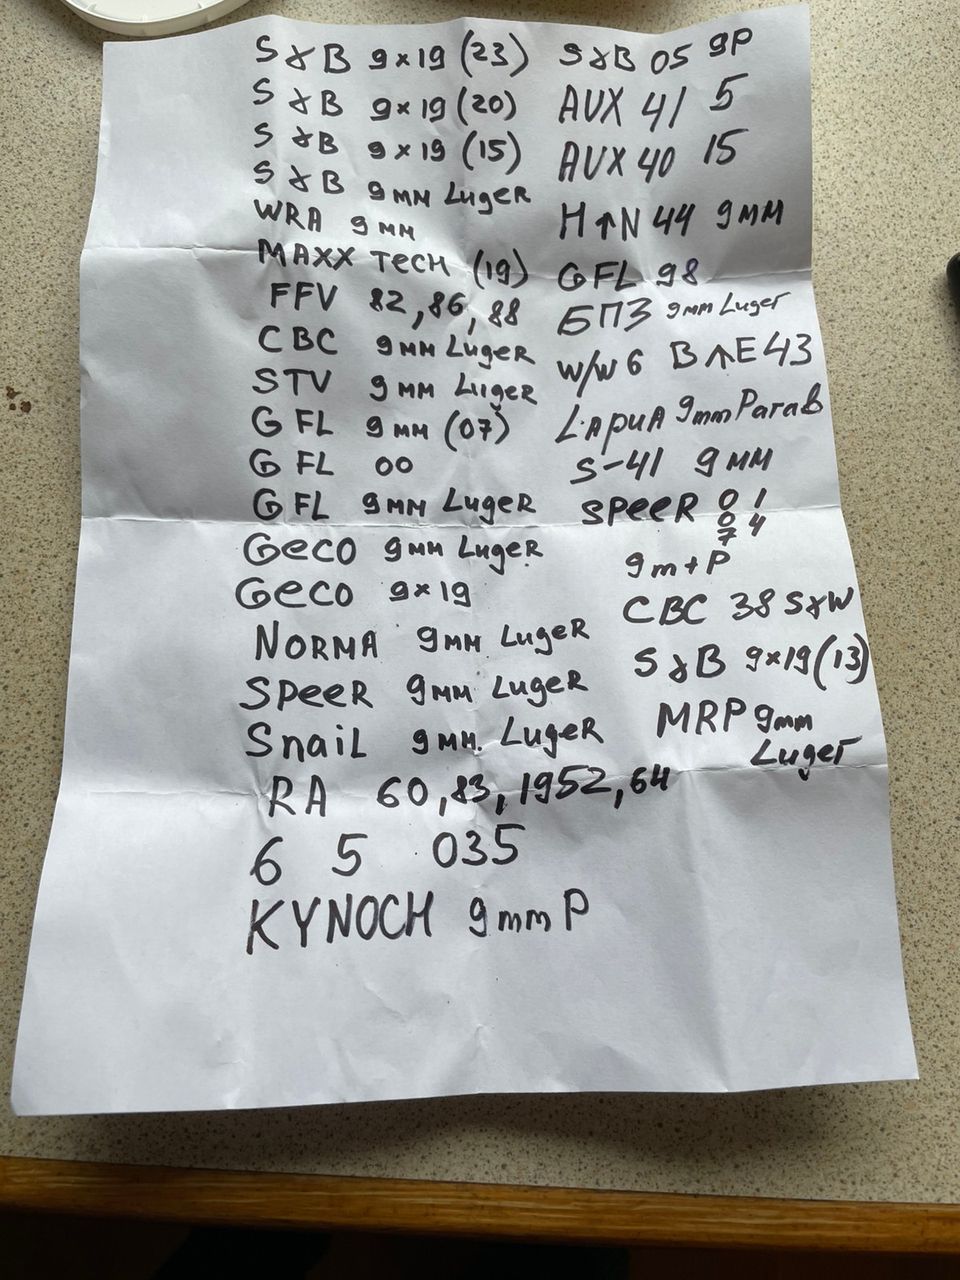 S&B 9×19 (23)
S&B 9×19 (20)
S&B 9×19 (15)
S&B 9мм LugeR
WRA 9мм
MAXX TECH (19)
FFV 82, 86, 88
CBC 9мм LugeR
STV 9мм LugeR
GFL 9мм (07)
GFL 00
GFL 9мм LugeR
GeCO 9мм LugeR
GeCO 9×19
NORMA 9мм LugeR
SPeeR 9мм LugeR
SnaiL 9мм. LugeR
RA 60, 83, 1952, 64
6 5 035
KYNOCH 9mm P
S&B 05 9P
AUX 41 5
AUX 40 15
H↑N 44 9мм
GFL 98
БПЗ 9mm Luger
W/W 6 B↑E 43
LApuA 9mm Parab
S-41 9мм
SPeeR 01
07 4
9m+P
CBC 38 S&W
S&B 9×19 (13)
MRP 9mm
Luger